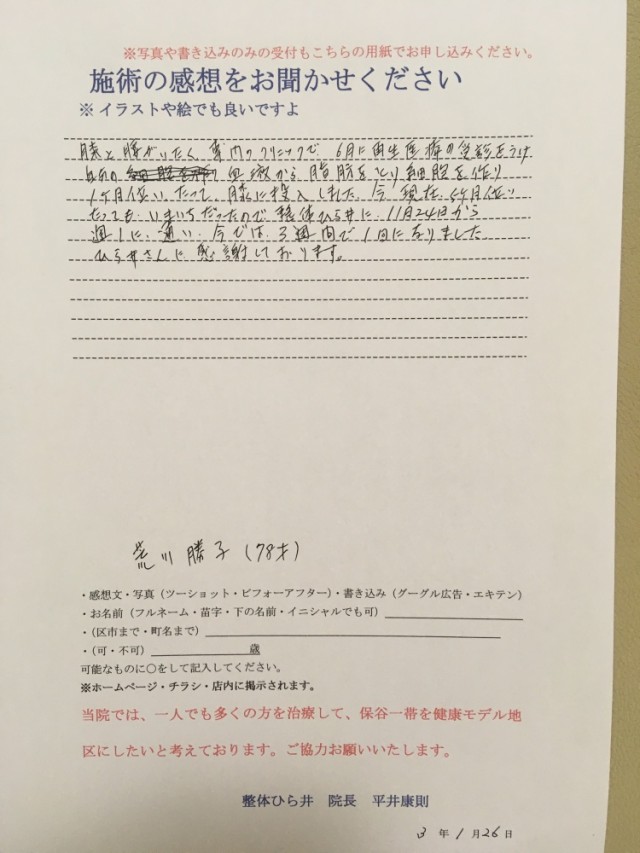 ※写真や書き込みのみの受付もこちらの用紙でお申し込みください。
施術の感想をお聞かせください
※ イラストや絵でも良いですよ
膝と腰がいたく 専門のクリニックで 6月に再生医療の を うけ
自分の から 脂肪をとり細胞を作り
1ヶ月位い たって、膝に投入しました。今 現在、 ヶ月位い
たっても いまいちだったので 整体ひら井に 11月24日から
週1に 通い 今では 3週間で1回になりました
ひら井さんに感謝しております。
荒川 勝子(78才)
・感想文・写真(ツーショット・ビフォーアフター)・書き込み(グーグル広告・エキテン)
・お名前(フルネーム・苗字・下の名前・イニシャルでも可)
・(区市まで・町名まで)
・(可・不可) 歳
可能なものに○をして記入してください。
※ホームページ・チラシ・店内に掲示されます。
当院では、一人でも多くの方を治療して、保谷一帯を健康モデル地
区にしたいと考えております。ご協力お願いいたします。
整体ひら井 院長 平井康則
3 年 1 月 26 日